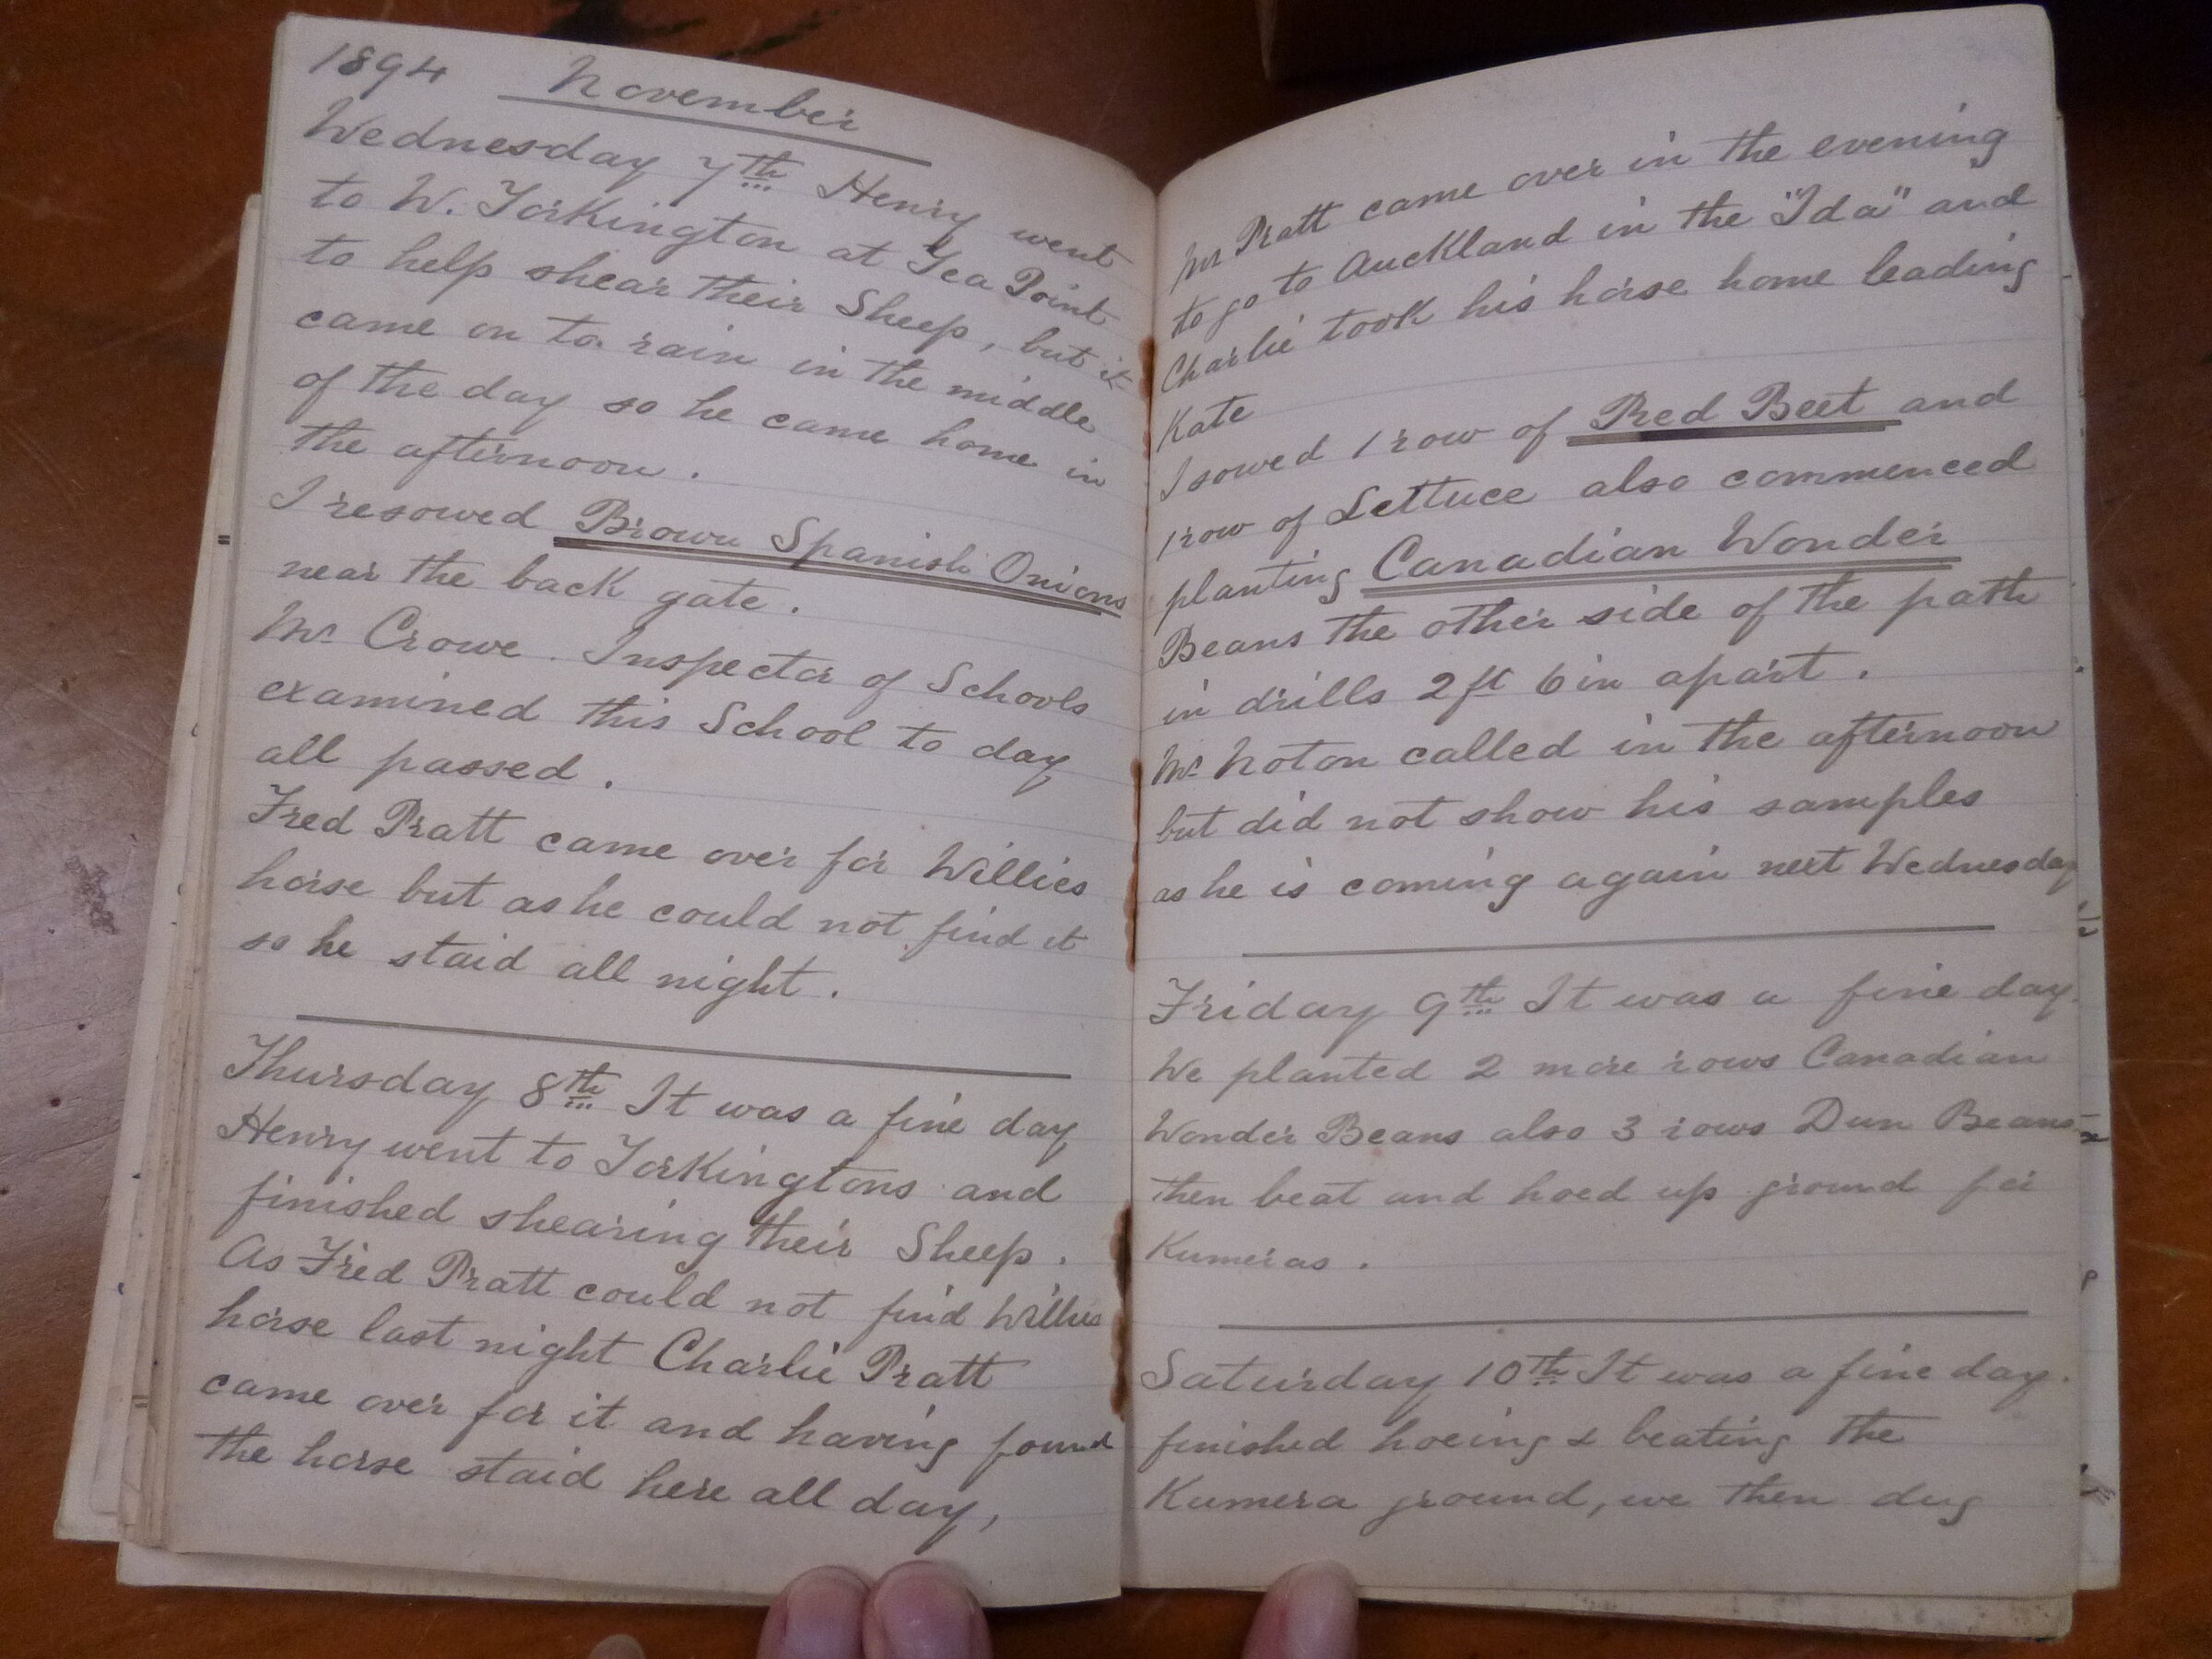 1894 November
Wednesday 7th Henry went
to W. Torkington at Tea Point
to help shear their Sheep, but it
came on to rain in the middle
of the day so he came home in
the afternoon.
I resowed Brown Spanish Onions
near the back gate.
Mr Crowe. Inspector of Schools
examined this School to day
all passed.
Fred Pratt came over for Willies
horse but as he could not find it
so he staid all night.
Thursday 8th It was a fine day
Henry went to Torkingtons and
finished shearing their Sheep.
As Fred Pratt could not find Willies
horse last night Charlie Pratt
came over for it and having found
the horse staid here all day,
Mr Pratt came over in the evening
to go to Auckland in the "Ida" and
Charlie took his horse home leading
Kate
I sowed 1 row of Red Beet and
1 row of Lettuce also commenced
planting Canadian Wonder
Beans the other side of the path
in drills 2 ft 6 in apart.
Mr Noton called in the afternoon
but did not show his samples
as he is coming again next Wednesday
Friday 9th It was a fine day.
We planted 2 more rows Canadian
Wonder Beans also 3 rows Dun Beans
then beat and hoed up ground for
Kumeras.
Saturday 10th It was a fine day.
finished hoeing & beating the
Kumera ground, we then dug